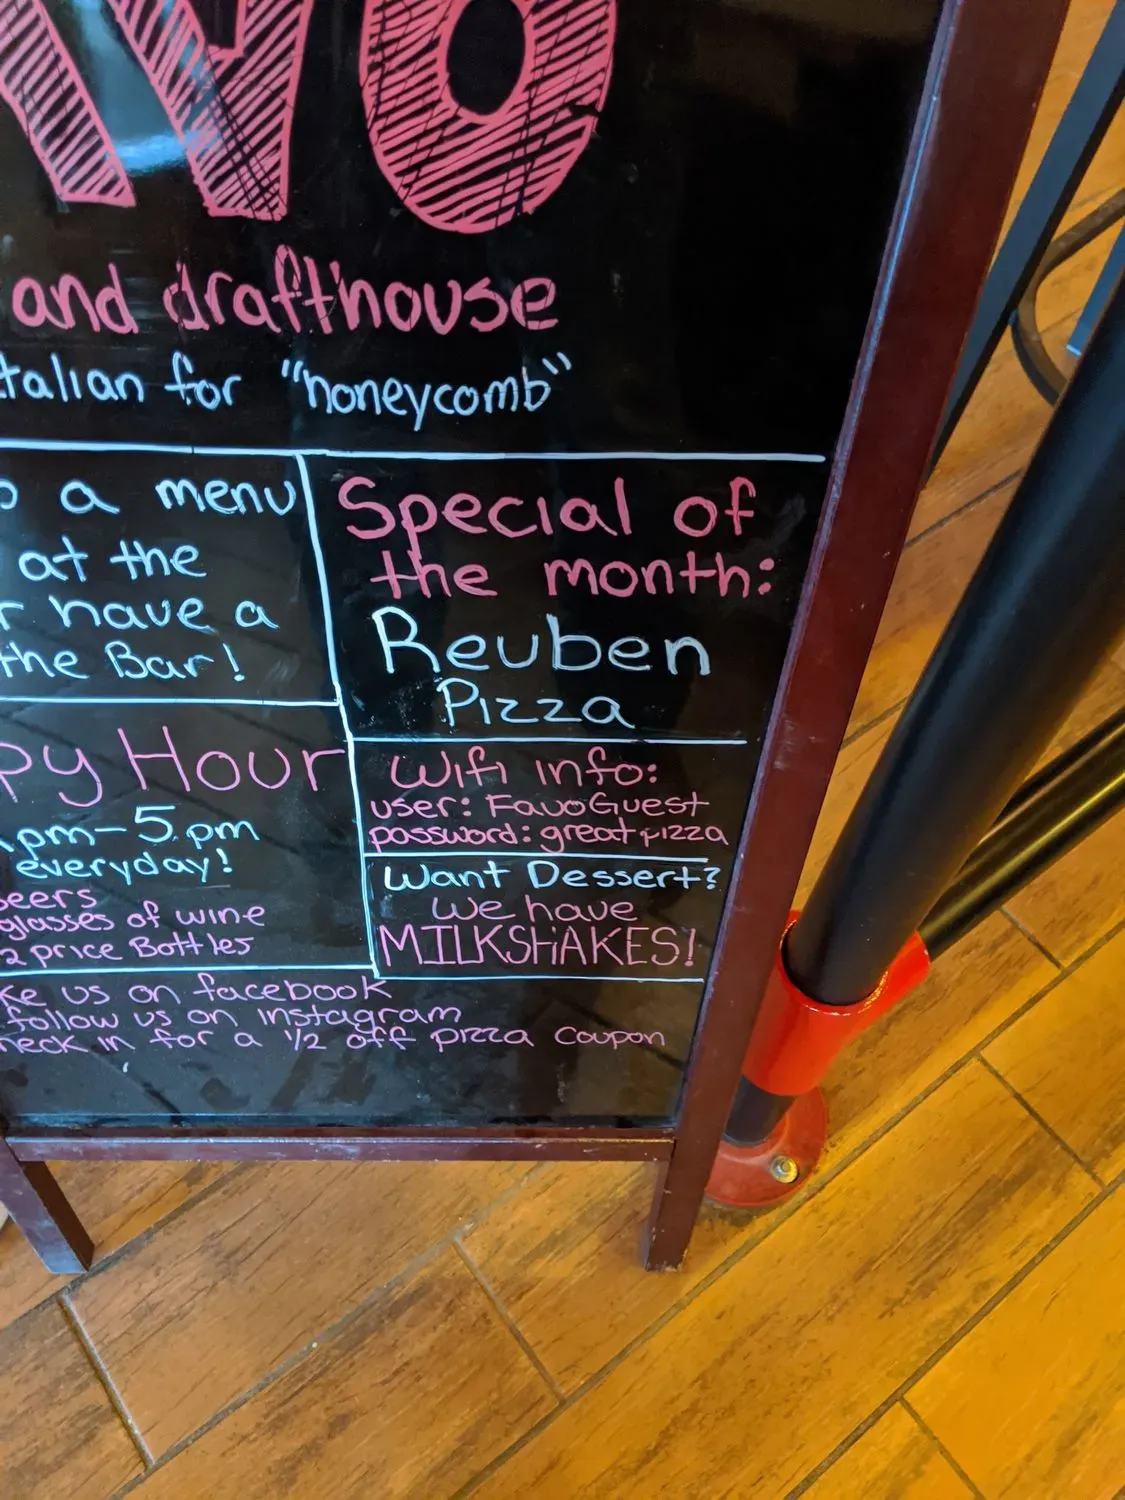 VO
and drafthouse
talian for "honeycomb"
a menu
at the
have a
the Bar!
Special of
the month:
Reuben
Pizza
py Hour
pm-5pm
everyday!
beers
glasses of wine
2 price Bottles
Wifi info:
user: FavoGuest
password: greatpizza
Want Dessert?
We have
MILKSHAKES!
ke us on facebook
follow us on instagram
heck in for a 1/2 off pizza coupon